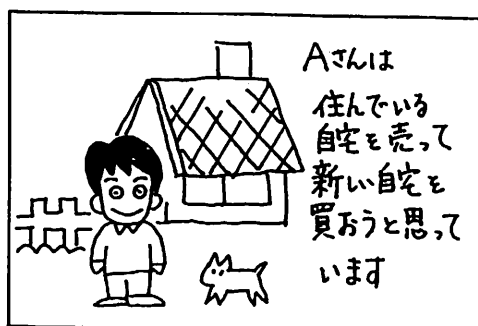 Aさんは
住んでいる
自宅を売って
新しい自宅を
買おうと思って
います